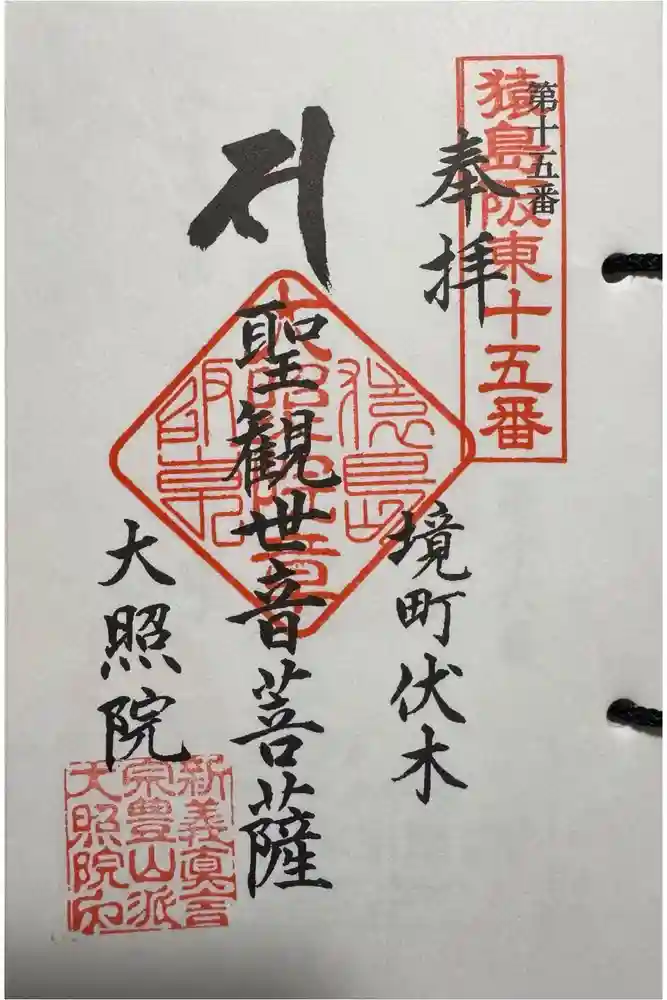 第十五番
猿島阪東十五番
奉拝
境町伏木
聖観世音菩薩
大照院
新義真言
宗豊山派
大照院印